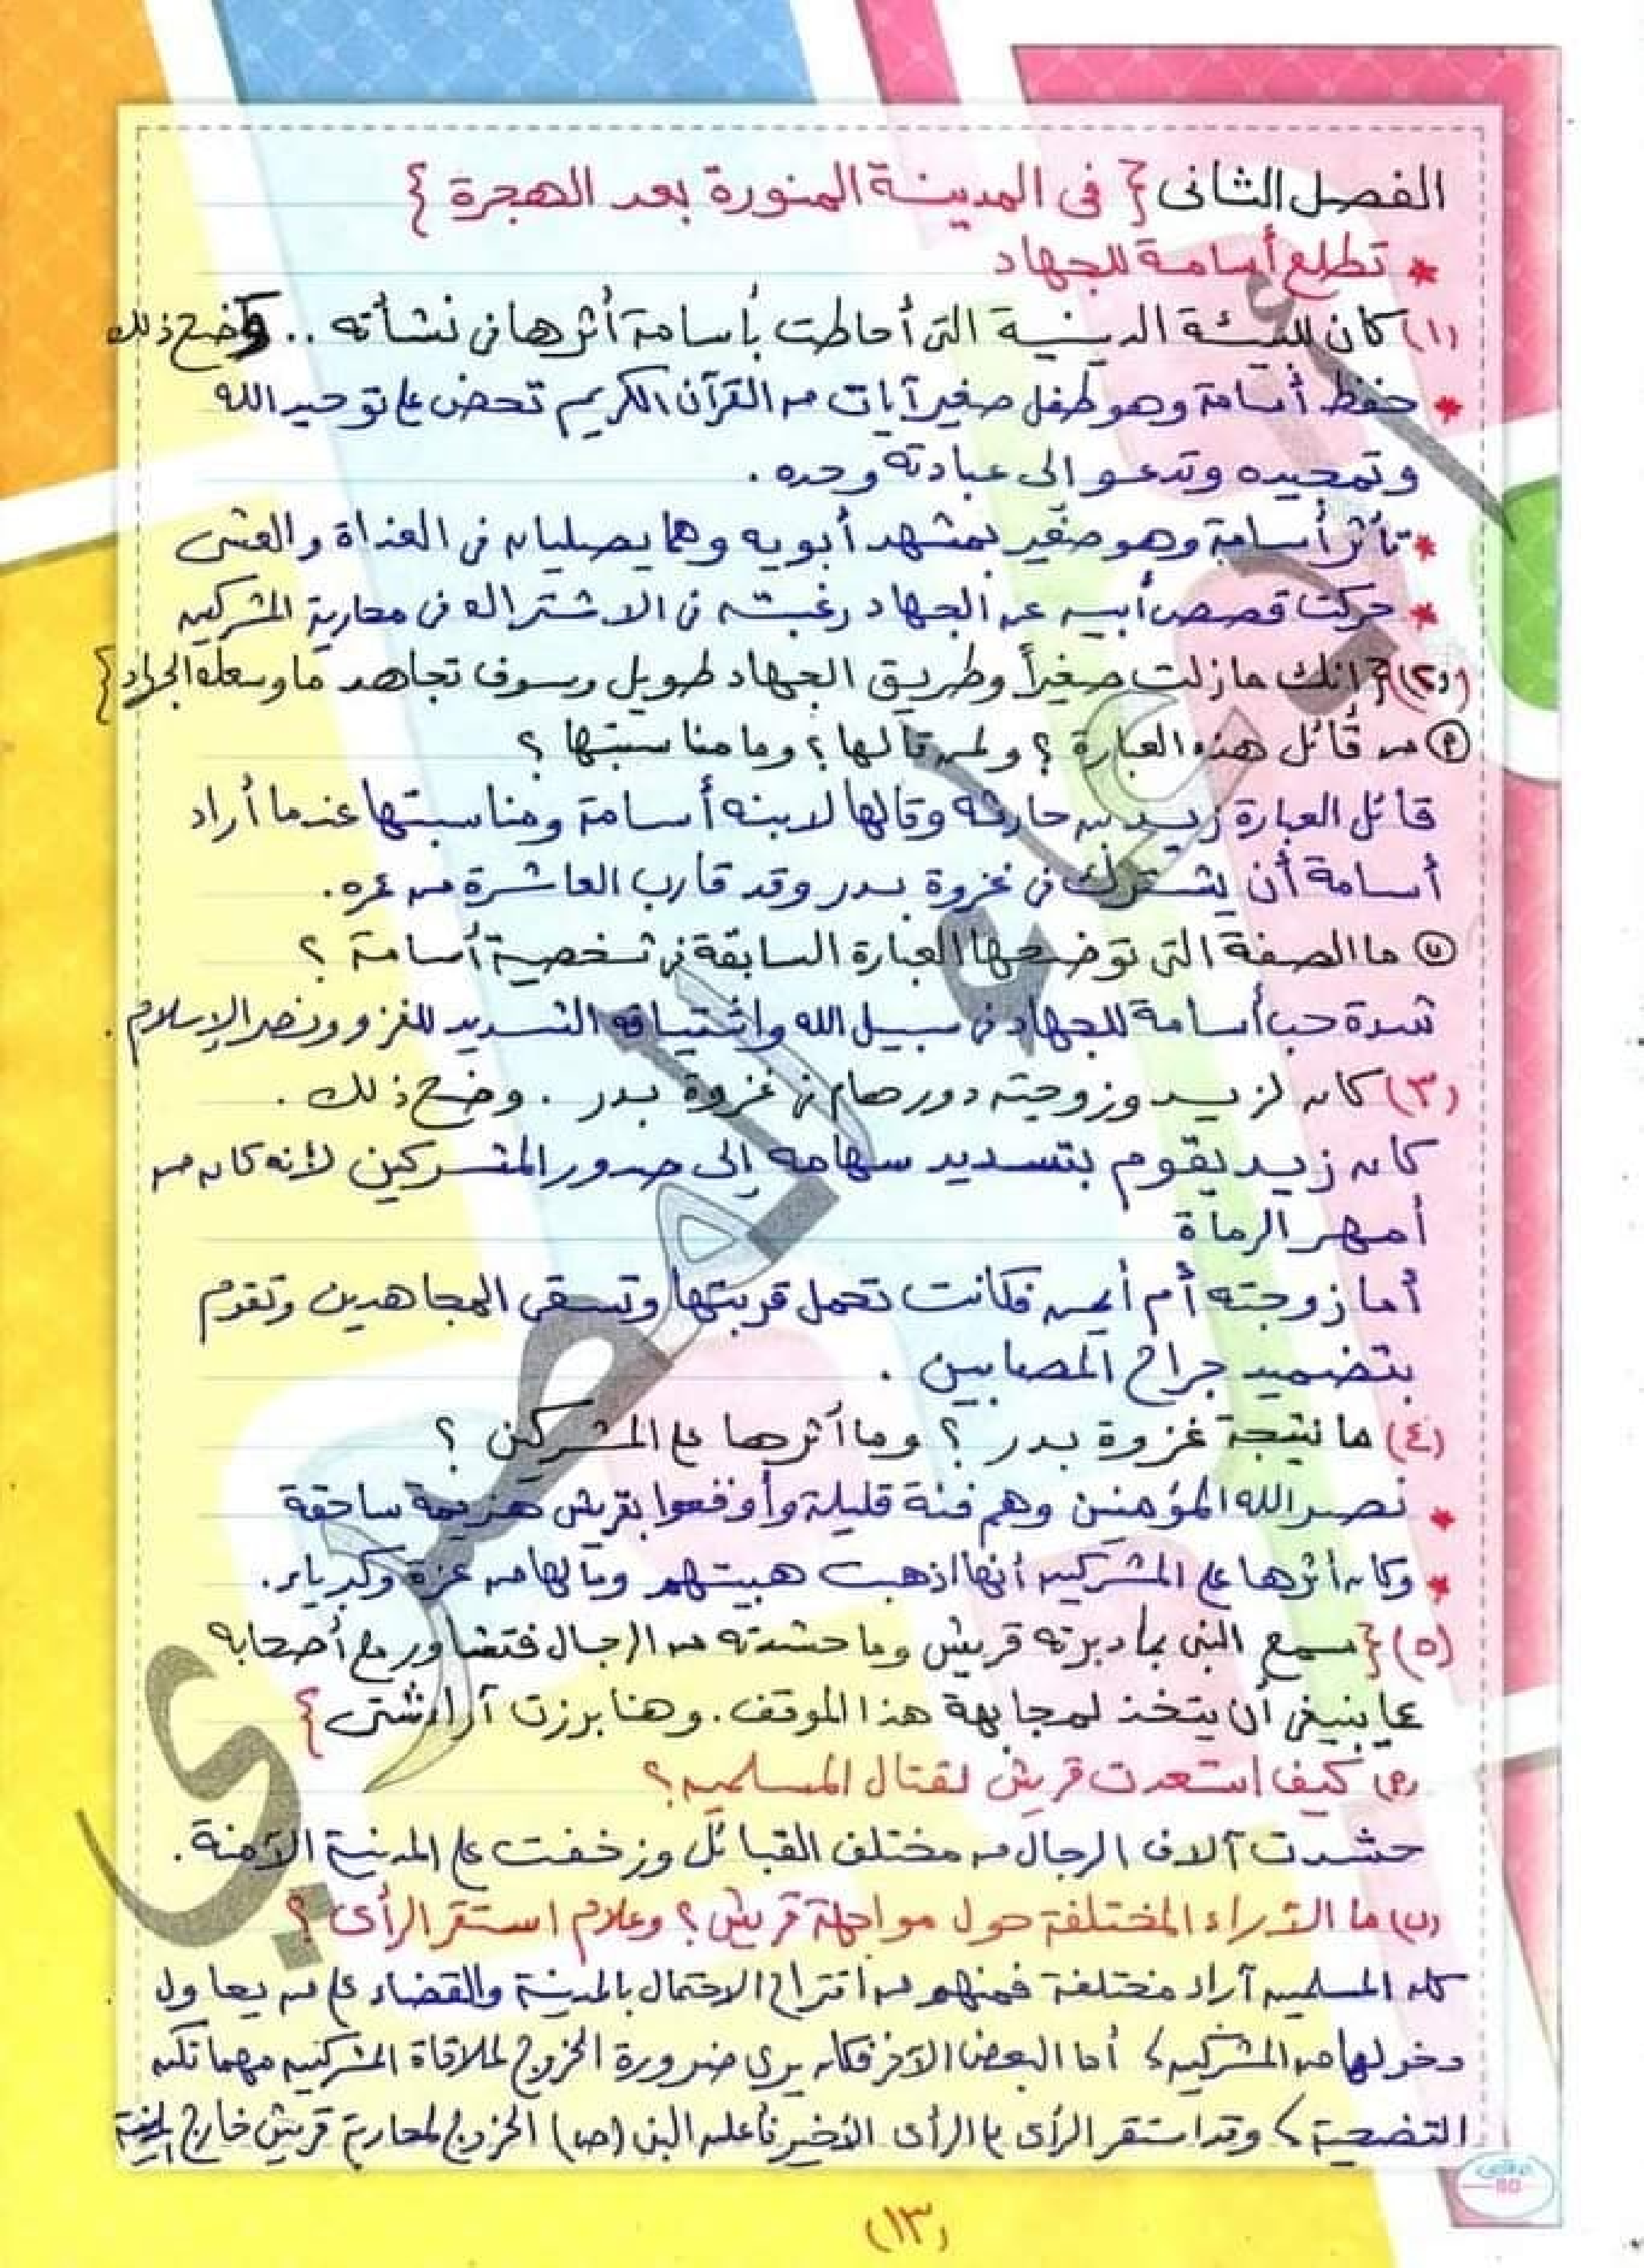 الفصل الثانى { فى المدينة المنورة بعد الهجرة }
* تطلع أسامة للجهاد
(١) كان للبيئة الدينية التى أحاطت بأسامة أثرها فى نشأته .. وضح ذلك
* حفظ أسامة وهو طفل صغير آيات من القرآن الكريم تحض على توحيد الله
وتمجيده وتدعو إلى عبادته وحده .
* تأثر أسامة وهو صغير بمشهد أبويه وهما يصليان فى الغداة والعشى
* حركت قصص أبيه عن الجهاد رغبته فى الاشتراك فى محاربة المشركين
(٢) { إنك مازلت صغيراً وطريق الجهاد طويل وسوف تجاهد ما وسعك الجهاد }
(أ) من قائل هذه العبارة ؟ ولمن قالها ؟ وما مناسبتها ؟
قائل العبارة زيد بن حارثة وقالها لابنه أسامة ومناسبتها عندما أراد
أسامة أن يشترك فى غزوة بدر وقد قارب العاشرة من عمره .
(ب) ما الصفة التى توضحها العبارة السابقة فى شخصية أسامة ؟
شدة حب أسامة للجهاد فى سبيل الله واشتياقه الشديد للغزو ونصر الإسلام .
(٣) كان لزيد وزوجته دور هام فى غزوة بدر . وضح ذلك .
كان زيد يقوم بتسديد سهامه إلى صدور المشركين لأنه كان من
أمهر الرماة
أما زوجته أم أيمن فكانت تحمل قربتها وتسقى المجاهدين وتقوم
بتضميد جراح المصابين .
(٤) ما نتيجة غزوة بدر ؟ وما أثرها على المشركين ؟
* نصر الله المؤمنين وهم فئة قليلة وأوقعوا بقريش هزيمة ساحقة
* وكان أثرها على المشركين أنها أذهبت هيبتهم ومالها من عزة وكبرياء .
(٥) { سمع النبى بما دبرته قريش وما حشدته من الرجال فتشاور مع أصحابه
عما ينبغى أن يتخذ لمجابهة هذا الموقف . وهنا برزت آراء شتى }
(أ) كيف استعدت قريش لقتال المسلمين ؟
حشدت آلاف الرجال من مختلف القبائل وزحفت على المدينة الآمنة .
(ب) ما الآراء المختلفة حول مواجهة قريش ؟ وعلام استقر الرأى ؟
كان المسلمين آراء مختلفة فمنهم من اقتراح الاحتمال بالمدينة والقضاء على من يحاول
دخولها من المشركين ، أما البعض الآخر فكان يرى ضرورة الخروج لملاقاة المشركين مهما تكن
التضحية ، وقد استقر الرأى على الرأى الأخير فأعلن النبى (ص) الخروج لمحاربة قريش خارج المدينة
(١٣)
أ. عيد المصري